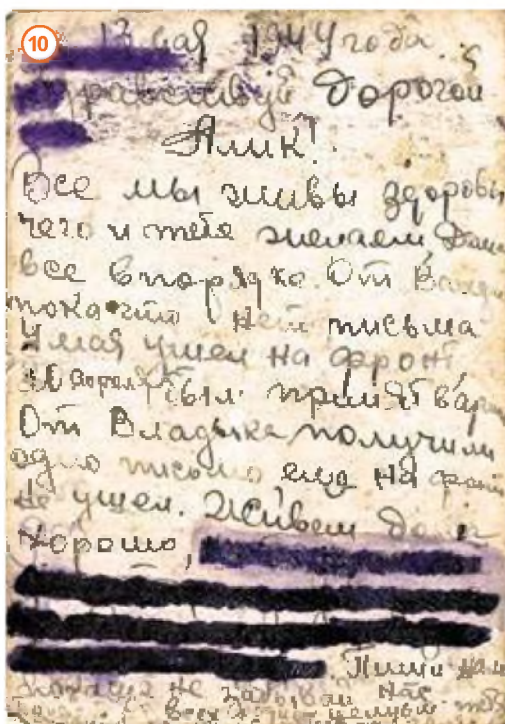 10
13 мая 1944 года.
Здравствуй Дорогой
Алик!
Все мы живы здоровы
чего и тебе желаем Дома
все в порядке. От
пока что нет письма
4 мая ушел на фронт
был принят
От Владика получили
одно письмо еще на фронт
не ушел. Живем дома
хорошо,
Пиши нам
не забывай нас
всех целуем тебя